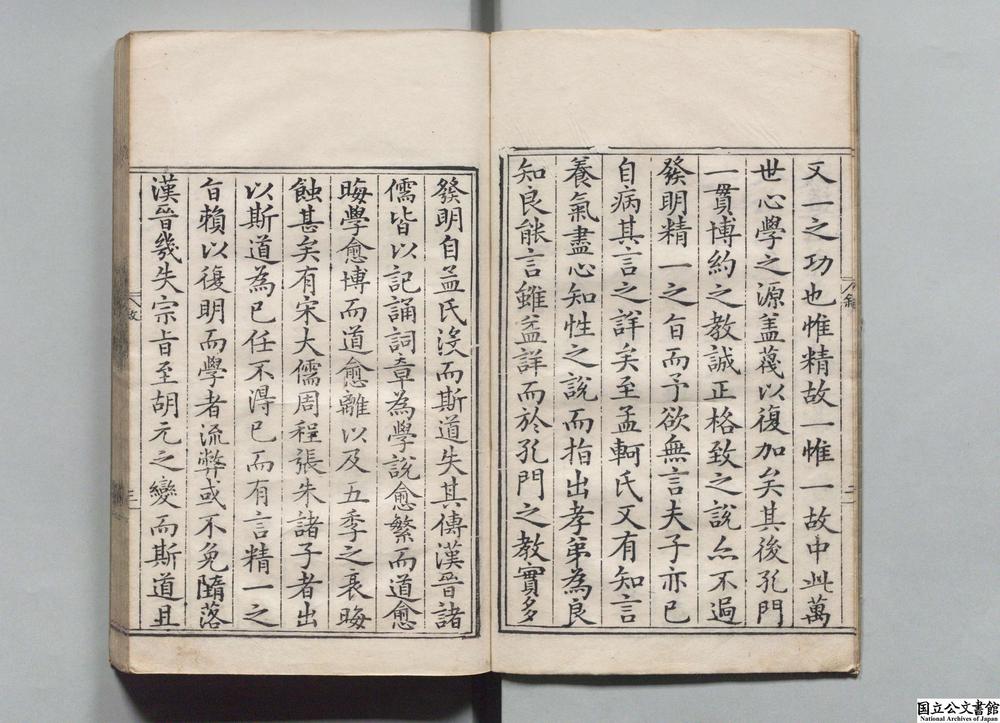 又一之功也惟精故一惟一故中此萬
世心學之源盖蔑以復加矣其後孔門
一貫博約之教誠正格致之說亦不過
發明精一之旨而予欲無言夫子亦已
自病其言之詳矣至孟軻氏又有知言
養氣盡心知性之說而指出孝弟為良
知良能言雖益詳而於孔門之教實多
發明自孟氏沒而斯道失其傳漢晉諸
儒皆以記誦詞章為學說愈繁而道愈
晦學愈博而道愈離以及五季之衰晦
蝕甚矣有宋大儒周程張朱諸子者出
以斯道為已任不得已而有言精一之
旨賴以復明而學者流弊或不免隨落
漢晉幾失宗旨至胡元之變而斯道且
三
国立公文書館
National Archives of Japan